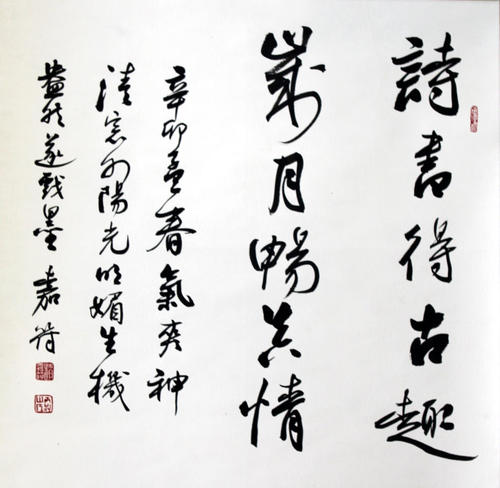 詩書得古趣
歲月暢其情
辛卯孟春氣爽神
清窓外陽光明媚生機
盎然遂戲墨 嘉符